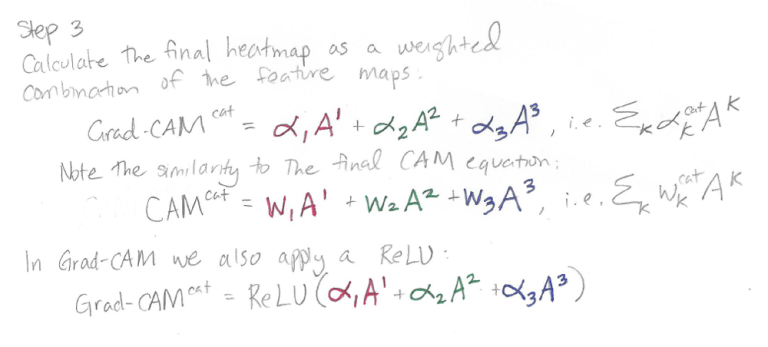 Step 3
Calculate the final heatmap as a weighted
combination of the feature maps:
Grad-CAM^cat = α₁A¹ + α₂A² + α₃A³, i.e. Σₖαₖ^cat Aᴷ
Note the similarity to the final CAM equation:
CAM^cat = W₁A¹ + W₂A² + W₃A³, i.e. Σₖ wₖ^cat Aᴷ
In Grad-CAM we also apply a ReLU:
Grad-CAM^cat = ReLU(α₁A¹ + α₂A² + α₃A³)